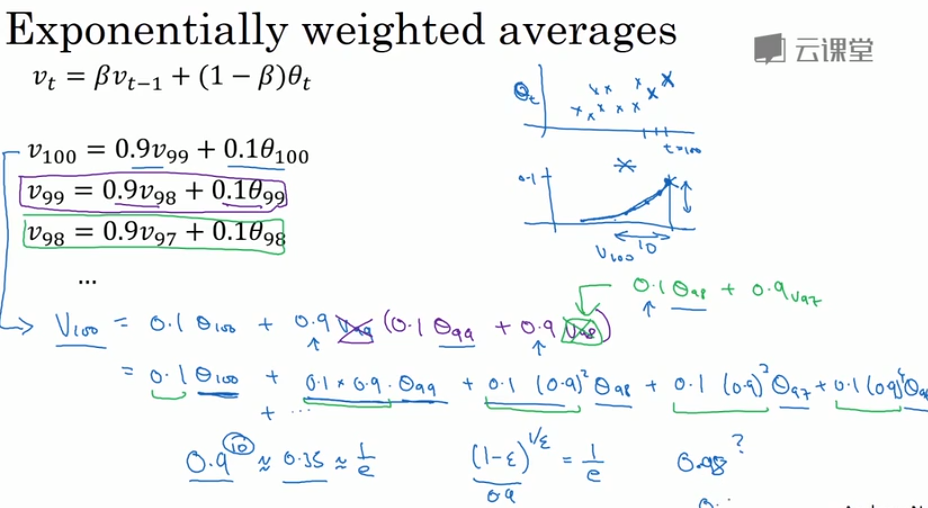 Exponentially weighted averages
云课堂
v_t = βv_{t−1} + (1 − β)θ_t
θ_t
t=100
v_100 = 0.9v_99 + 0.1θ_100
v_99 = 0.9v_98 + 0.1θ_99
v_98 = 0.9v_97 + 0.1θ_98
...
0.1
V_100 10
0.1 θ_98 + 0.9 v_97
V_100 = 0.1 θ_100 + 0.9 (0.1 θ_99 + 0.9 v_98)
= 0.1 θ_100 + 0.1 × 0.9 · θ_99 + 0.1 (0.9)^2 θ_98 + 0.1 (0.9)^3 θ_97 + 0.1 (0.9)^4
+ ...
0.9^10 ≈ 0.35 ≈ 1/e
(1-ε)^{1/ε} = 1/e
0.9
0.98^?